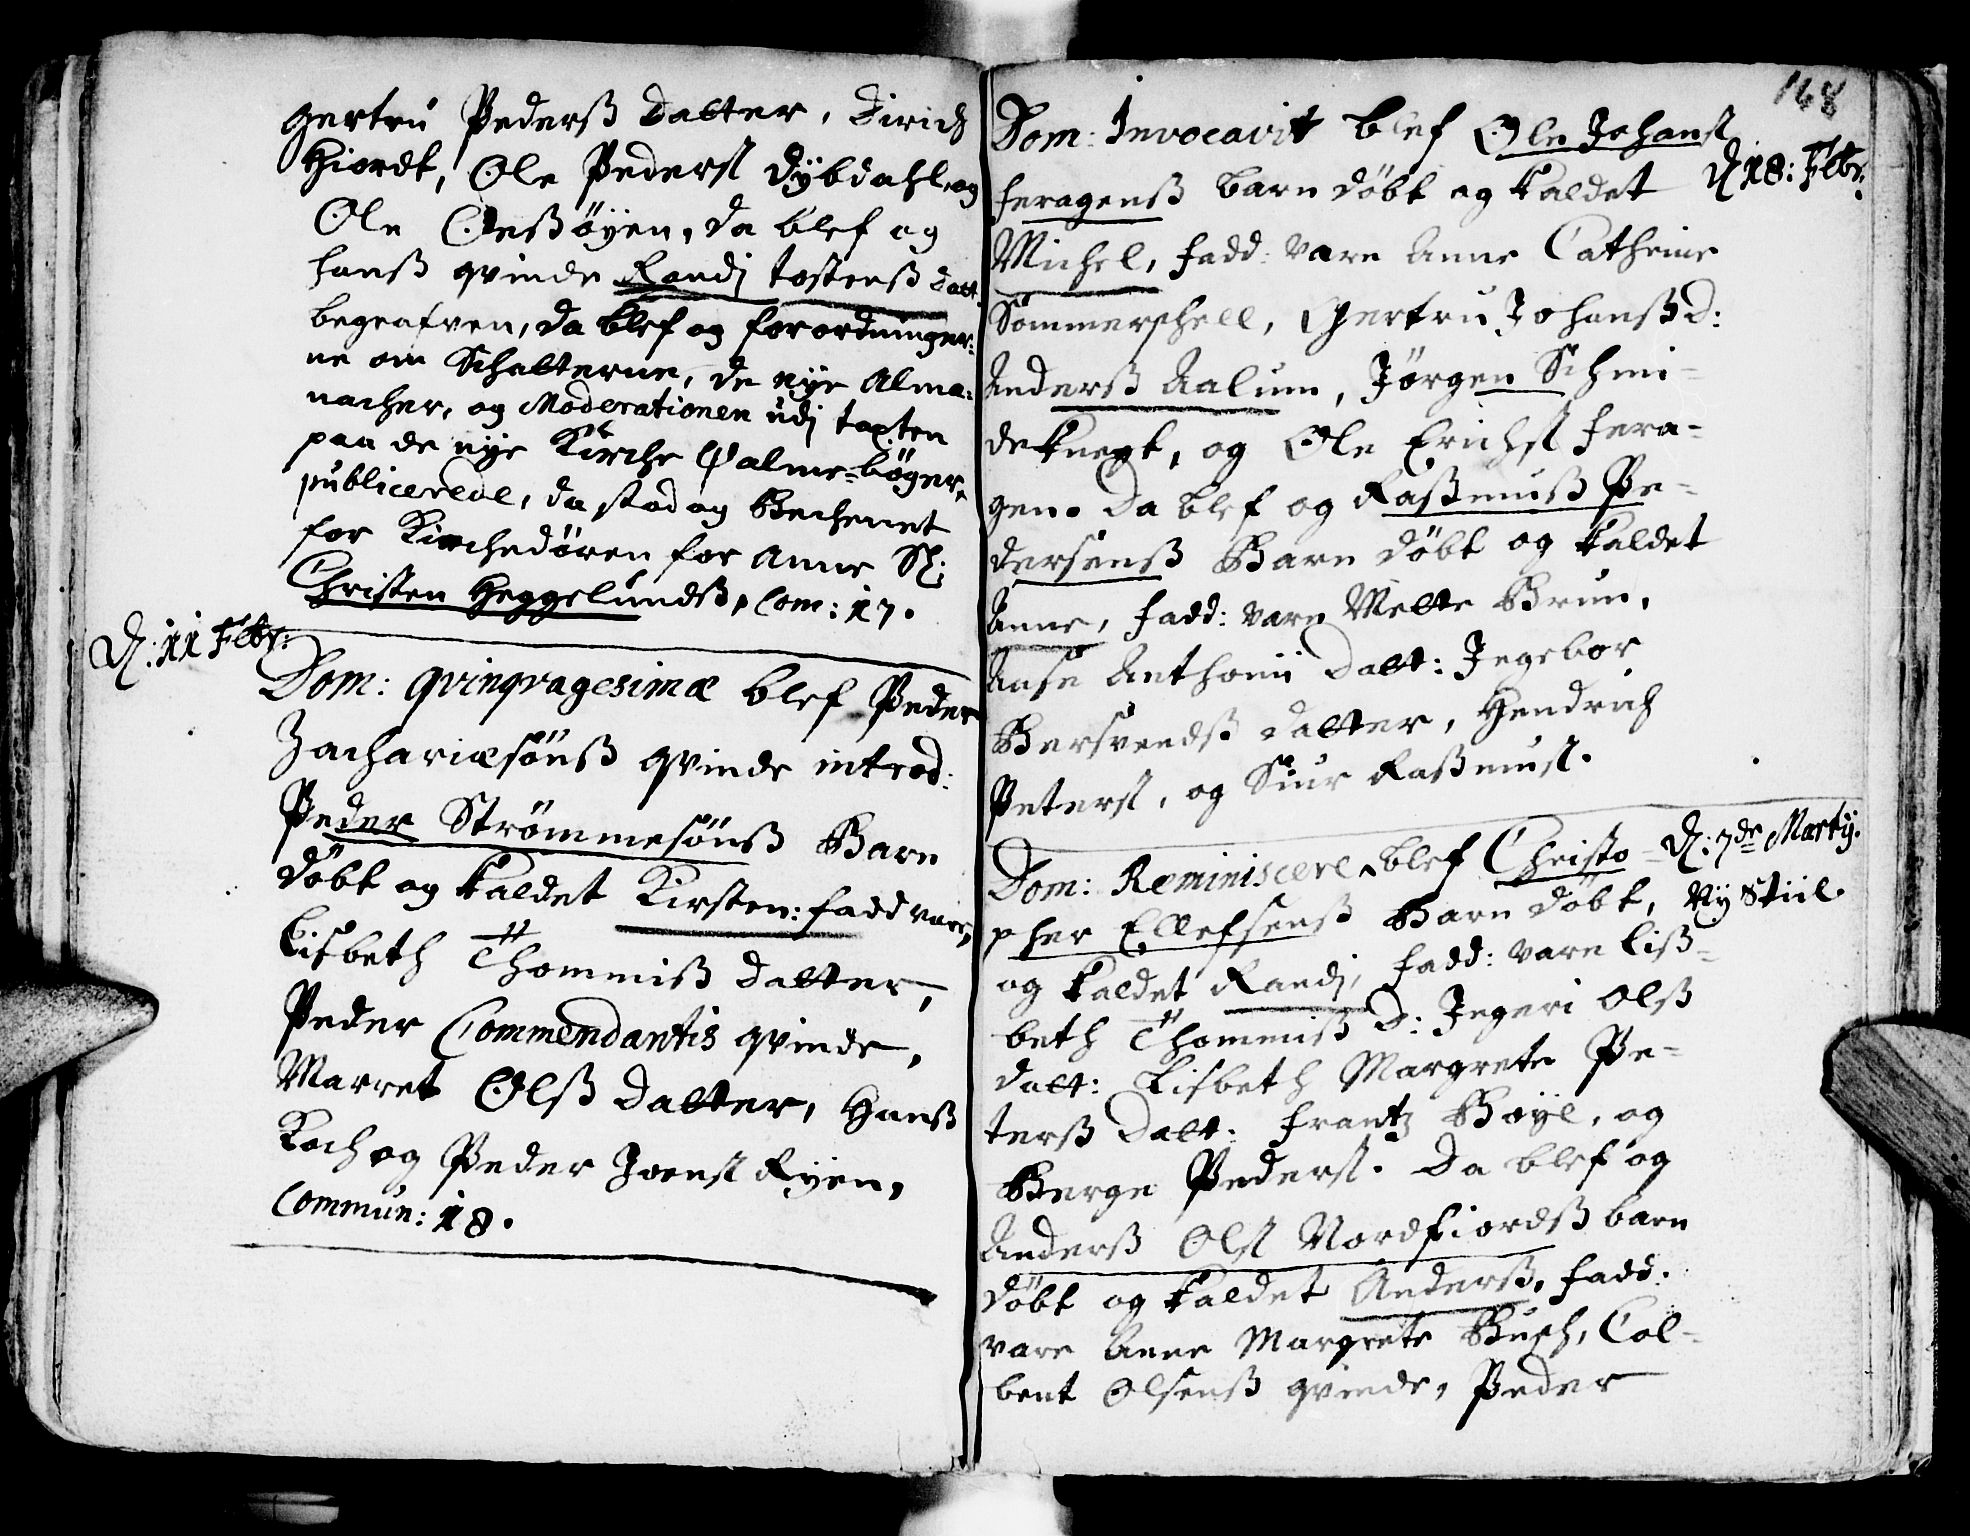 gertru Pederß datter, Dirich
Hiordt, Ole Pederst Dybdahl, og
Ole Oenßøyen, da blef og
hanß qvinde Randj tosterß datt.
begrafven, da blef og forordninger=
ne om Schatterne, de nye Alma=
nacher, og Moderationen udj taxten
paa de nye Kirche Psalme=bøger
publicerede, da stod og Bechenet
for Kirchedøren for Anne Sl:
Christen Heggelundß, Com: 17.
D: 11 Febr:
Dom: qvinqvagesimæ blef Peder
Zachariæsønß qvinde introd:
Peder Strømmesønß Barn
døbt og kaldet Kirsten: fadd vare,
Lisbeth Thommiß datter,
Peder Commendantis qvinde,
Marret Olß datter, Hanß
Koch og Peder Joenst Ryen,
Commun: 18.
168
Dom: Invocavit blef Ole Johanst
D 18: Febr:
feragenß barn døbt og kaldet
Michel, fadd: vare Anne Cathrine
Sommerschell, Gertru Johanß D:
Anderß Aalum, Jørgen Schmi-
deknegt, og Ole Erichst fera-
gen. Da blef og Raßmuß Pe-
dersenß Barn døbt og kaldet
Anne, fadd: vare Mette Brun,
Aase Anthonii datt: Ingebor
Bersvendß datter, Hendrich
Peterst, og Siur Raßmust.
Dom: Reminiscere, blef Christo-
D: 7de Martij.
pher Ellefsenß Barn døbt,
Ny Stiil
og kaldet Randj, fadd: vare Liß-
beth Thommiß D: Ingeri Olß
datt: Lisbeth Margrete Pe-
terß datt: frantz Boyl, og
Berge Pederst. Da blef og
Anderß Olst Nordfiordß barn
døbt og kaldet Anderß, fadd:
vare Anne Margrete Busch, Col-
bent Olsenß qvinde, Peder